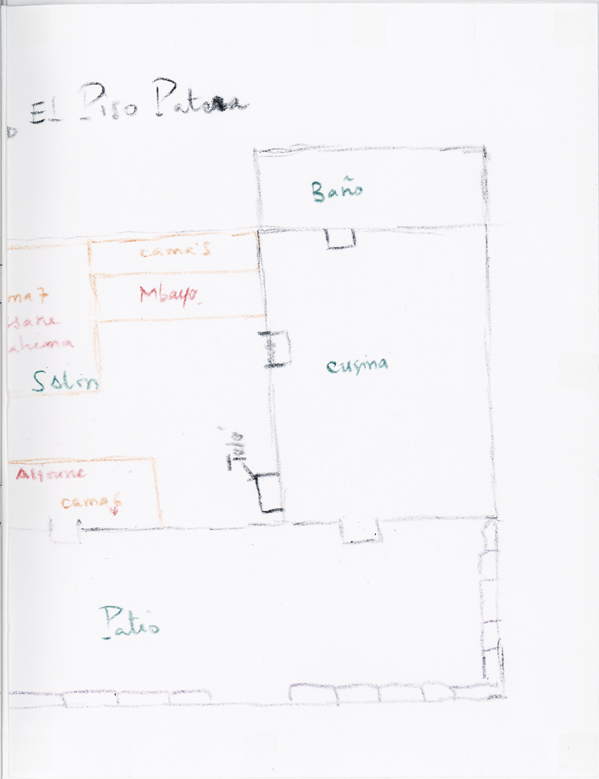 o EL Piso Patera
Baño
cama 5
Mbaye
ma 7
Salin
cusina
Telé
Alioune
cama 6
Patio